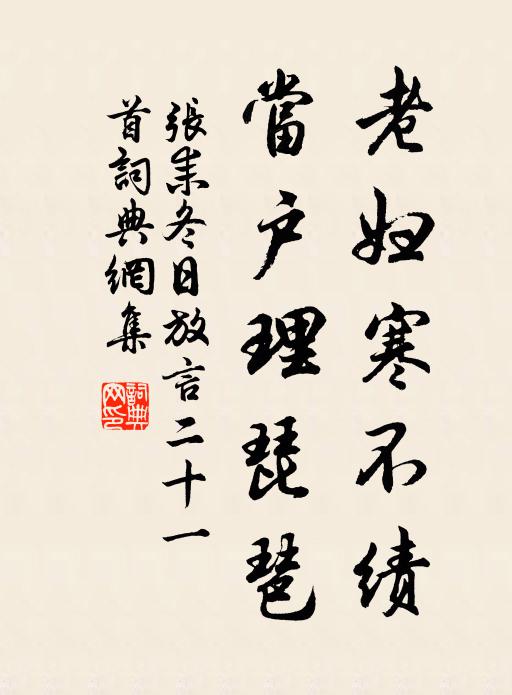 老妇寒不績
當户理琵琶
張耒冬日放言二十一
首詞典網集
詞典網印